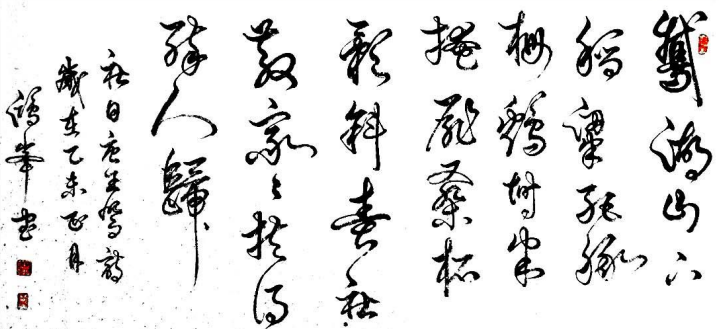 鵝湖山下
稻粱肥豚
栅鷄塒半
掩扉桑柘
影斜春社
散家々扶得
醉人歸
社日唐王駕詩
歲在乙未正月
書